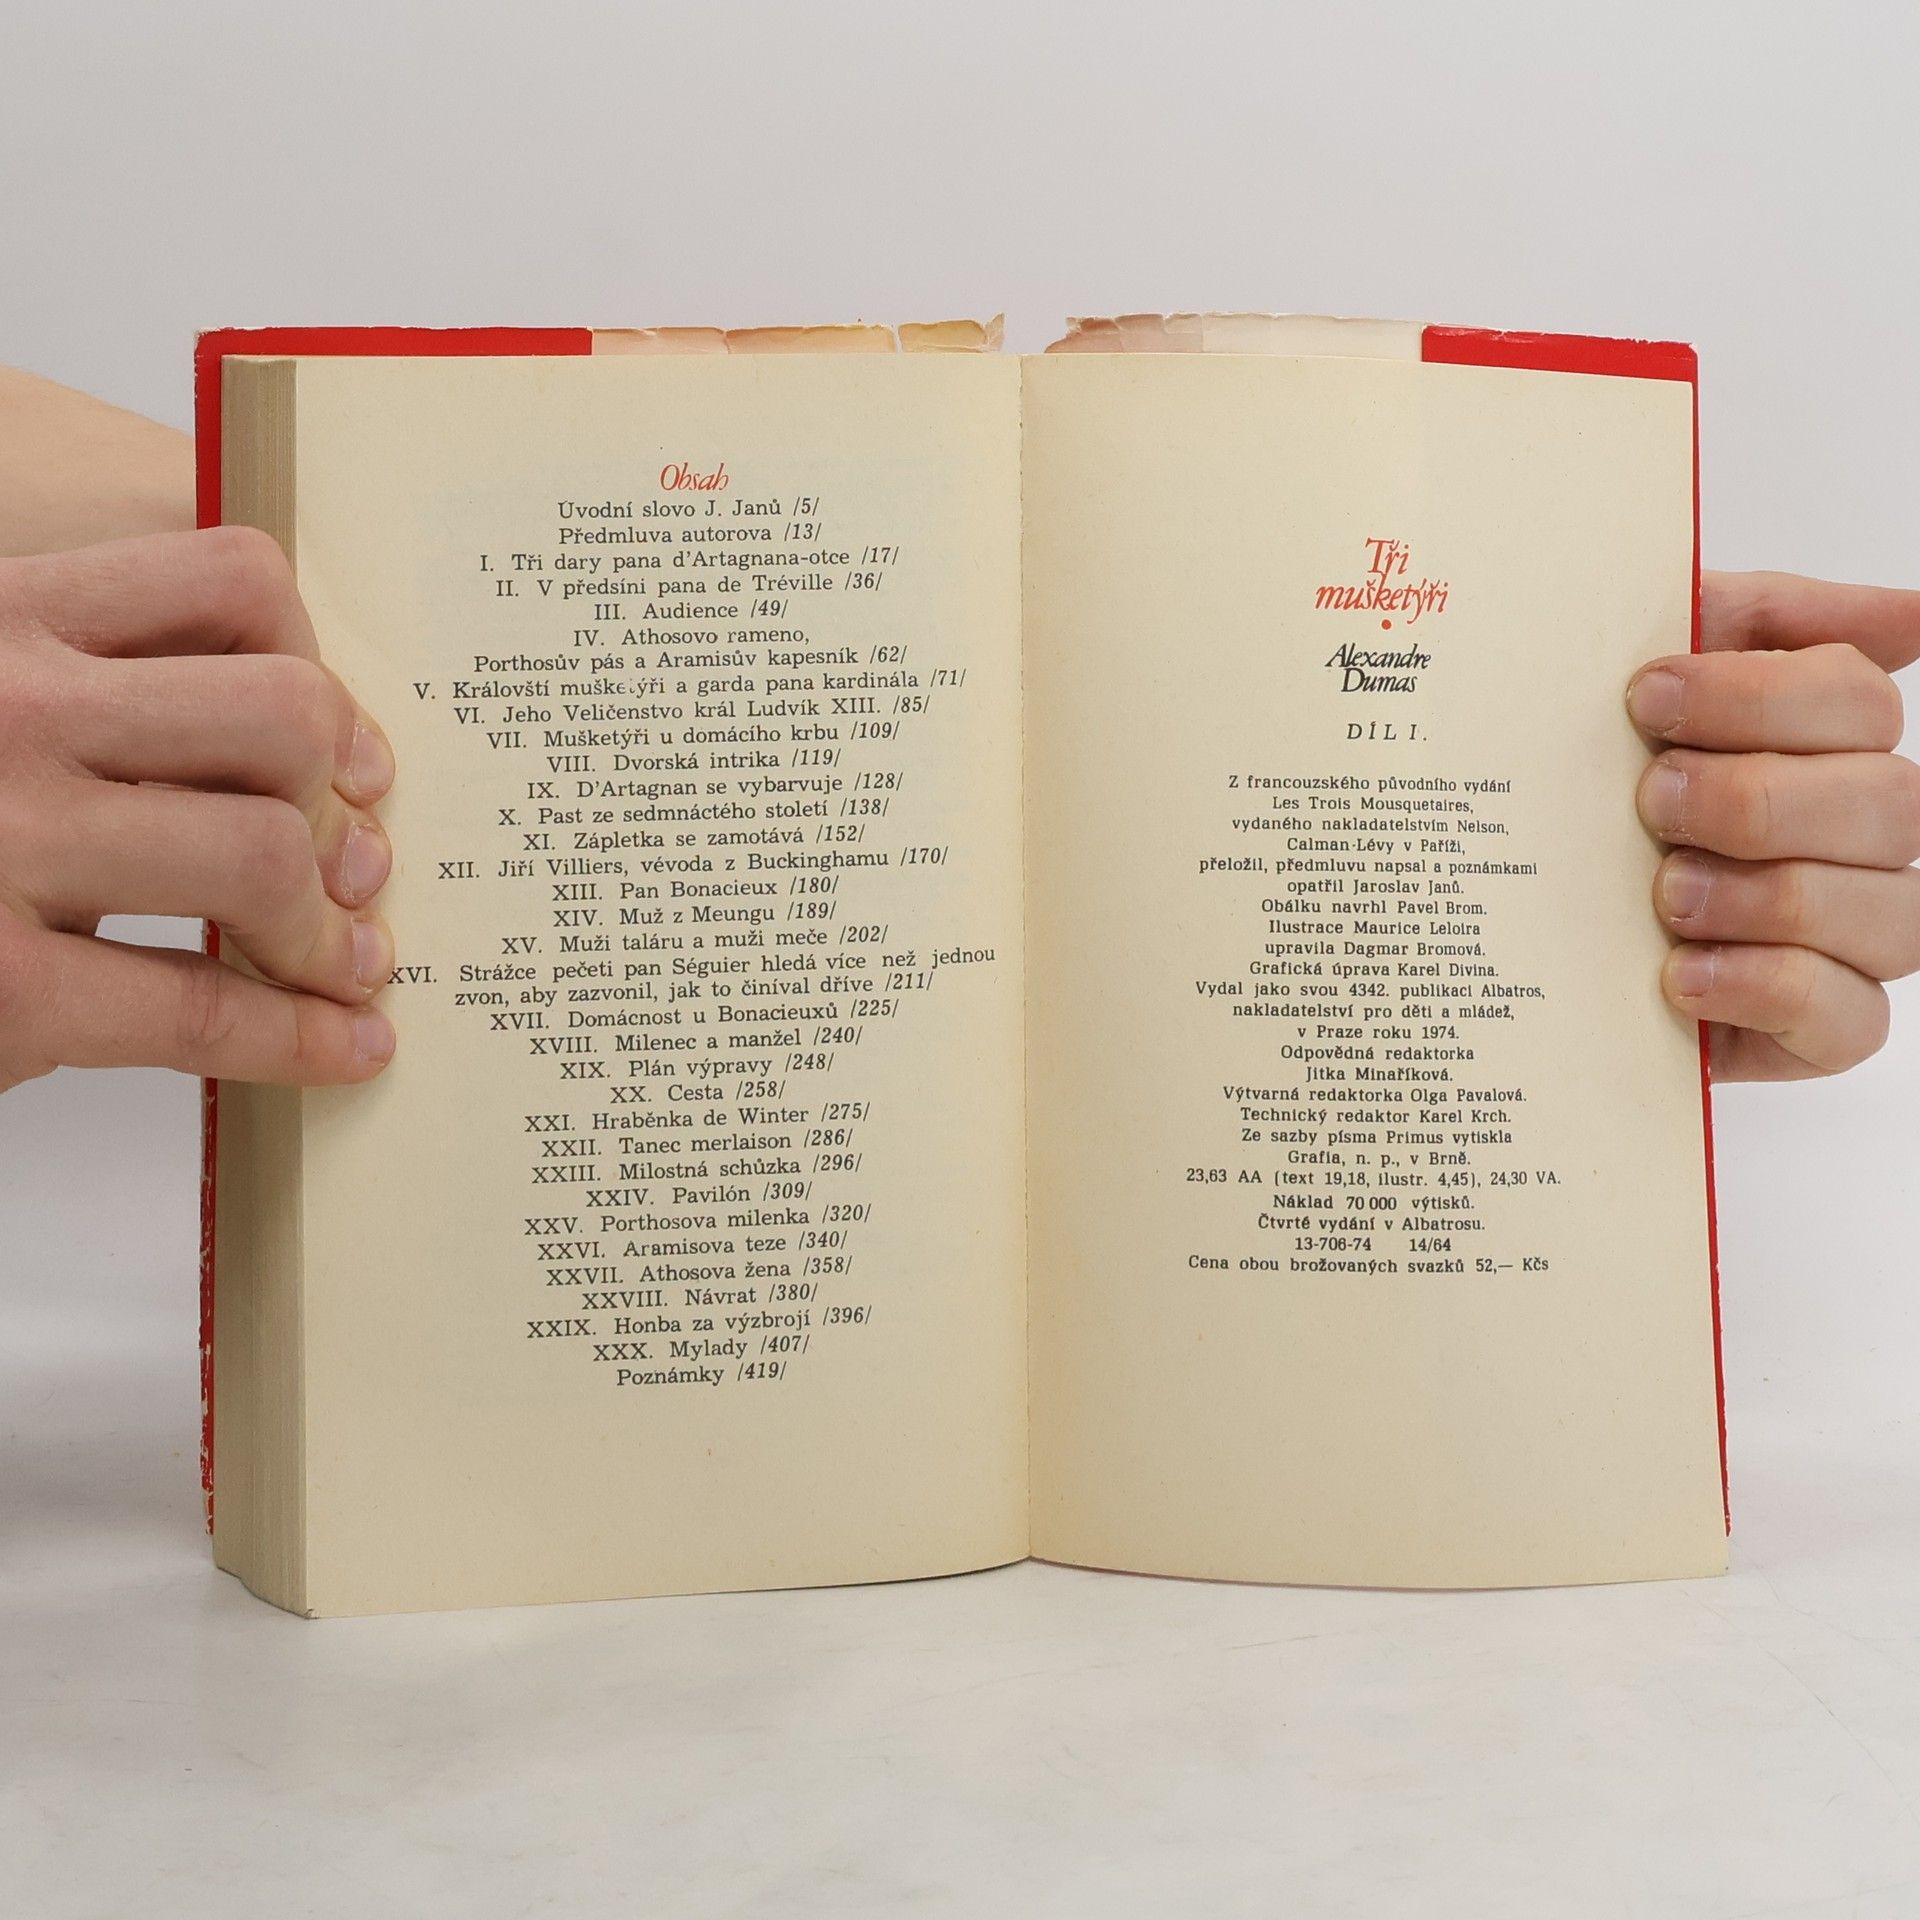 Obsah
Úvodní slovo J. Janů /5/
Předmluva autorova /13/
I. Tři dary pana d'Artagnana-otce /17/
II. V předsíni pana de Tréville /36/
III. Audience /49/
IV. Athosovo rameno,
Porthosův pás a Aramisův kapesník /62/
V. Královští mušketýři a garda pana kardinála /71/
VI. Jeho Veličenstvo král Ludvík XIII. /85/
VII. Mušketýři u domácího krbu /109/
VIII. Dvorská intrika /119/
IX. D'Artagnan se vybarvuje /128/
X. Past ze sedmnáctého století /138/
XI. Zápletka se zamotává /152/
XII. Jiří Villiers, vévoda z Buckinghamu /170/
XIII. Pan Bonacieux /180/
XIV. Muž z Meungu /189/
XV. Muži taláru a muži meče /202/
XVI. Strážce pečeti pan Séguier hledá více než jednou
zvon, aby zazvonil, jak to činíval dříve /211/
XVII. Domácnost u Bonacieuxů /225/
XVIII. Milenec a manžel /240/
XIX. Plán výpravy /248/
XX. Cesta /258/
XXI. Hraběnka de Winter /275/
XXII. Tanec merlaison /286/
XXIII. Milostná schůzka /296/
XXIV. Pavilón /309/
XXV. Porthosova milenka /320/
XXVI. Aramisova teze /340/
XXVII. Athosova žena /358/
XXVIII. Návrat /380/
XXIX. Honba za výzbrojí /396/
XXX. Mylady /407/
Poznámky /419/
Tři
mušketýři
Alexandre
Dumas
DÍL I.
Z francouzského původního vydání
Les Trois Mousquetaires,
vydaného nakladatelstvím Nelson,
Calman-Lévy v Paříži,
přeložil, předmluvu napsal a poznámkami
opatřil Jaroslav Janů.
Obálku navrhl Pavel Brom.
Ilustrace Maurice Leloira
upravila Dagmar Bromová.
Grafická úprava Karel Divina.
Vydal jako svou 4342. publikaci Albatros,
nakladatelství pro děti a mládež,
v Praze roku 1974.
Odpovědná redaktorka
Jitka Minaříková.
Výtvarná redaktorka Olga Pavalová.
Technický redaktor Karel Krch.
Ze sazby písma Primus vytiskla
Grafia, n. p., v Brně.
23,63 AA (text 19,18, ilustr. 4,45), 24,30 VA.
Náklad 70 000 výtisků.
Čtvrté vydání v Albatrosu.
13-706-74 14/64
Cena obou brožovaných svazků 52,— Kčs